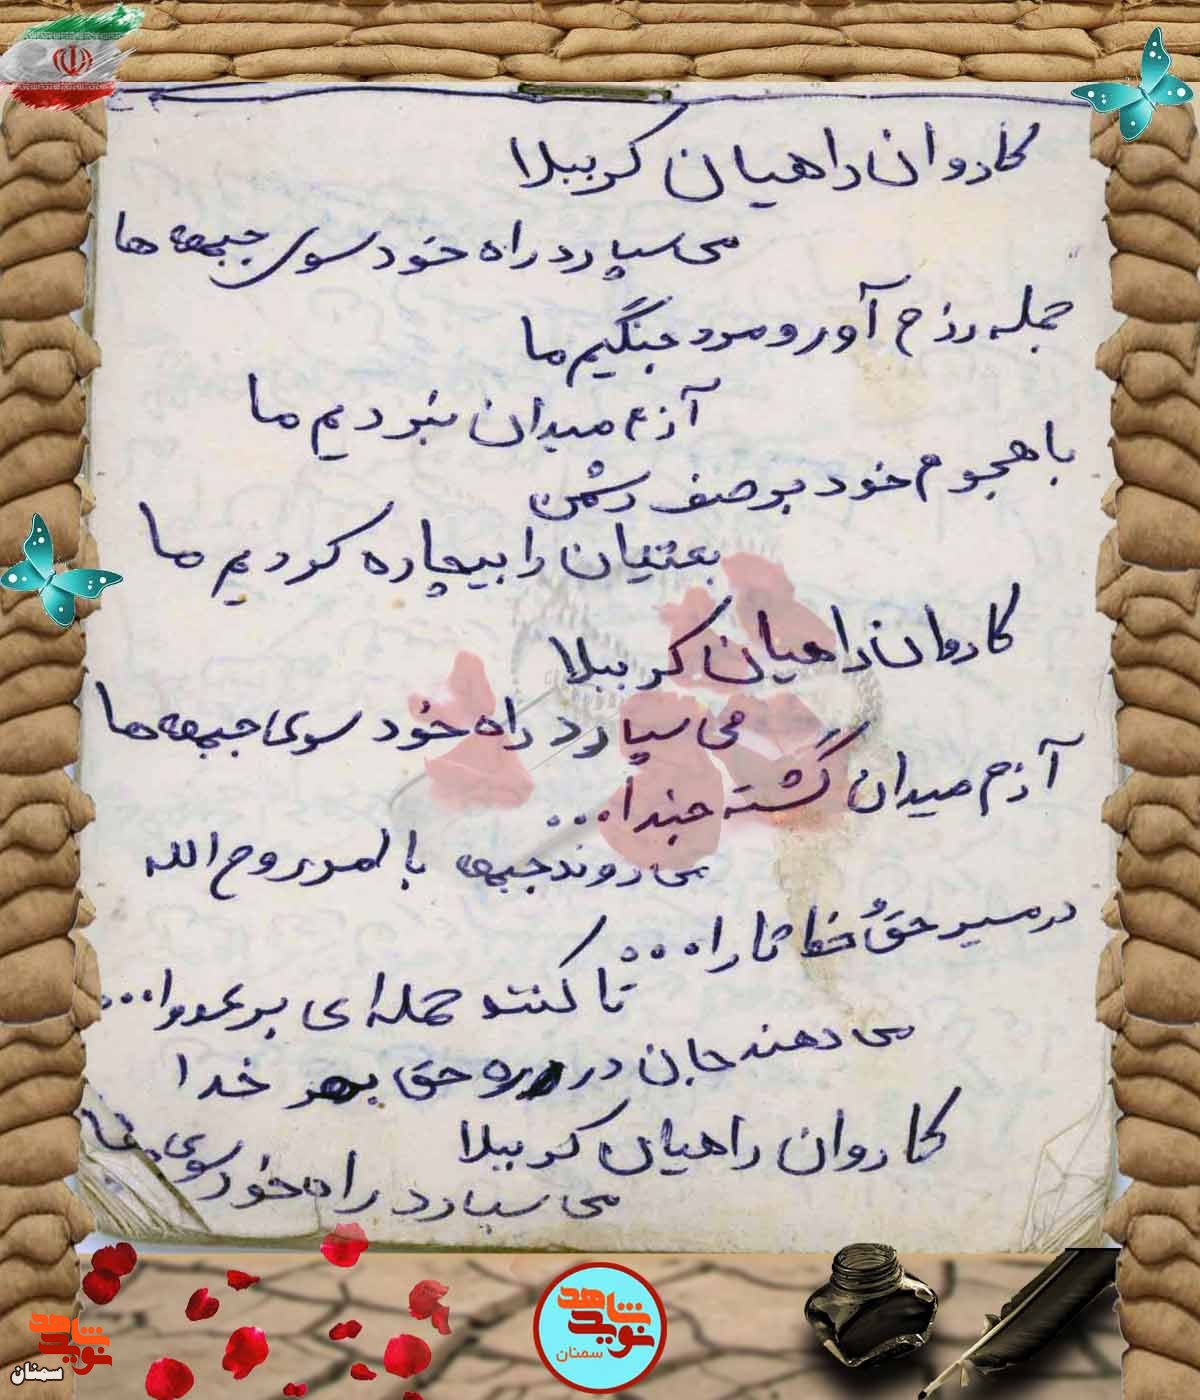 کاروان راهیان کربلا
می سپارد راه خود سوی جبهه ها
جمله رزم آور و مرد جنگیم ما
آزم میدان نبردیم ما
با هجوم خود بر صف دشمن
بعثیان را بیچاره کردیم ما
کاروان راهیان کربلا
می سپارد راه خود سوی جبهه ها
آزم میدان گشته جندا...
می روند جبهه با امر روح الله
در مسیر حق خدا را...
تا کنند حمله ای بر عدوا...
می دهند جان در ره حق بهر خدا
کاروان راهیان کربلا
می سپارد راه خود سوی
نوید شاهد
سمنان
نوید شاهد
سمنان